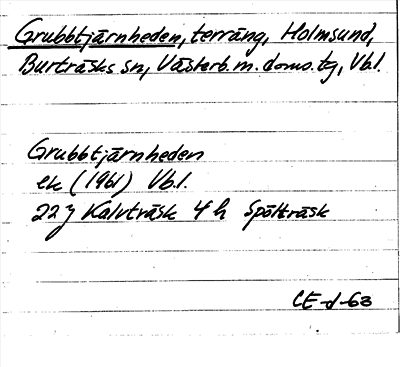 Grubbtjärnheden, terräng, Holmsund,
Burträsks sn, Västerb.m.doms.tg, Vb.l.
Grubbtjärnheden
ek (1961) Vb.l.
22 J Kalvträsk 4 h Spöltråsk
CE-d-63